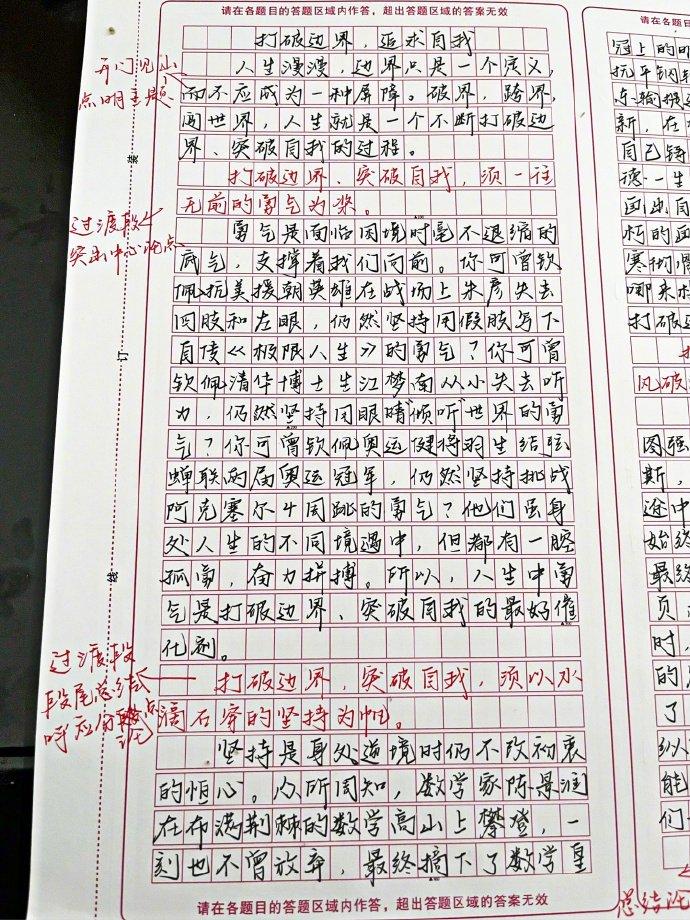 请在各题目的答题区域内作答，超出答题区域的答案无效
打破边界，追求自我
人生漫漫，边界只是一个定义，
而不应成为一种屏障。破界，跨界，
闯世界，人生就是一个不断打破边
界、突破自我的过程。
打破边界、突破自我，须一往
无前的勇气为桨。
勇气是面临困境时毫不退缩的
底气，支撑着我们向前。你可曾钦
佩抗美援朝英雄在战场上朱彦失去
四肢和左眼，仍然坚持用假肢写下
自传《极限人生》的勇气？你可曾
钦佩清华博士生江梦南从小失去听
力，仍然坚持用眼睛“倾听”世界的勇
气？你可曾钦佩奥运健将羽生结弦
蝉联两届奥运冠军，仍然坚持挑战
阿克塞尔4周跳的勇气？他们虽身
处人生的不同境遇中，但都有一腔
孤勇，奋力拼搏。所以，人生中勇
气是打破边界、突破自我的最好催
化剂。
打破边界，突破自我，须以水
滴石穿的坚持为帆。
坚持是身处逆境时仍不改初衷
的恒心。众所周知，数学家陈景润
在布满荆棘的数学高山上攀登，一
刻也不曾放弃，最终摘下了数学皇
请在各题目的答题区域内作答，超出答题区域的答案无效
开门见山
点明主题
过渡段
突出中心论点
过渡段
段尾总结
呼应分论点
装
订
线
请在各题目
冠上的明
抗平
东输
新，在
自己铸
德一生
画出自
朽的画
寒彻骨
哪来
打破
风破
图强
斯，
途中
始终
最终
页
时，
的
了
纵
能
们
总结论